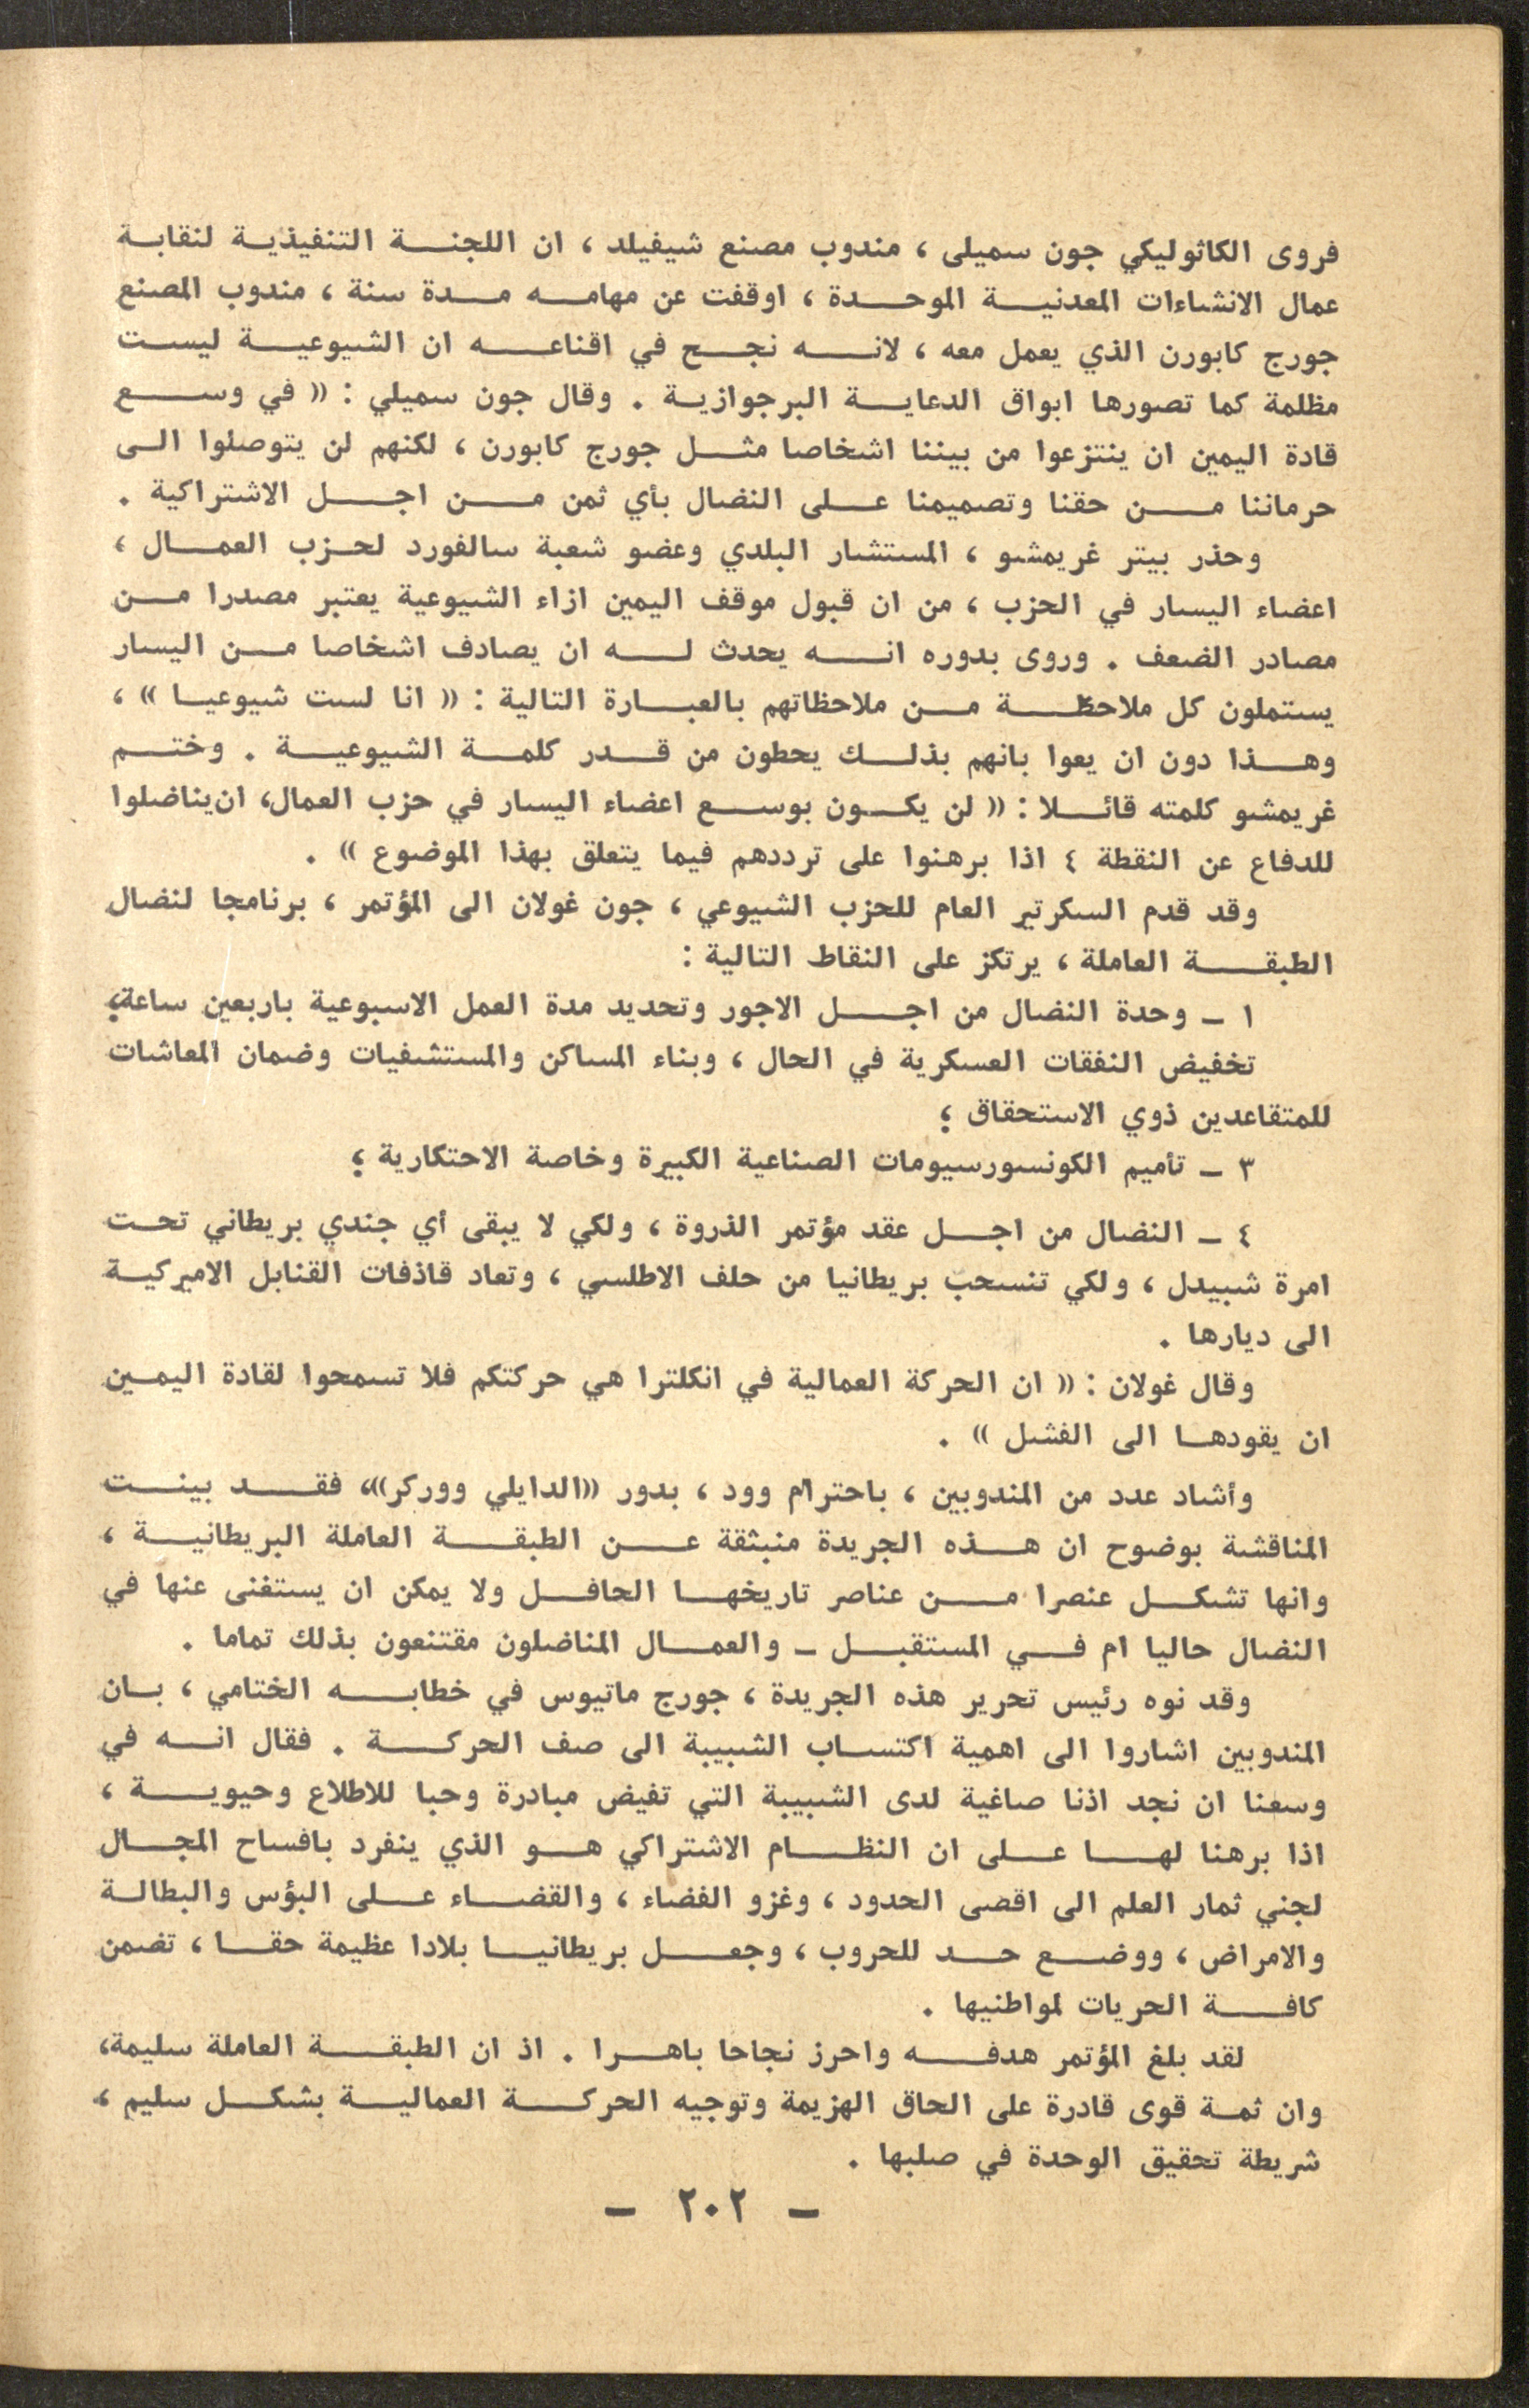 فروى الكاثوليكي جون سميلى ، مندوب مصنع شيفيلد ، ان اللجنة التنفيذية لنقابة
عمال الانشاءات المعدنية الموحدة ، اوقفت عن مهامه مدة سنة ، مندوب المصنع
جورج كابورن الذي يعمل معه ، لانه نجح في اقناعه ان الشيوعية ليست
مظلمة كما تصورها ابواق الدعاية البرجوازية . وقال جون سميلي : « في وسع
قادة اليمين ان ينتزعوا من بيننا اشخاصا مثل جورج كابورن ، لكنهم لن يتوصلوا الى
حرماننا من حقنا وتصميمنا على النضال بأي ثمن من اجل الاشتراكية .
وحذر بيتر غريمشو ، المستشار البلدي وعضو شعبة سالفورد لحزب العمال ،
اعضاء اليسار في الحزب ، من ان قبول موقف اليمين ازاء الشيوعية يعتبر مصدرا من
مصادر الضعف . وروى بدوره انه يحدث له ان يصادف اشخاصا من اليسار
يستملون كل ملاحظة من ملاحظاتهم بالعبارة التالية : « انا لست شيوعيا » ،
وهذا دون ان يعوا بانهم بذلك يحطون من قدر كلمة الشيوعية . وختم
غريمشو كلمته قائلا : « لن يكون بوسع اعضاء اليسار في حزب العمال، ان يناضلوا
للدفاع عن النقطة ٤ اذا برهنوا على ترددهم فيما يتعلق بهذا الموضوع » .
وقد قدم السكرتير العام للحزب الشيوعي ، جون غولان الى المؤتمر ، برنامجا لنضال
الطبقة العاملة ، يرتكز على النقاط التالية :
١ ـ وحدة النضال من اجل الاجور وتحديد مدة العمل الاسبوعية باربعين ساعة؛
تخفيض النفقات العسكرية في الحال ، وبناء المساكن والمستشفيات وضمان المعاشات
للمتقاعدين ذوي الاستحقاق ؛
٣ ـ تأميم الكونسورسيومات الصناعية الكبيرة وخاصة الاحتكارية ؛
٤ ـ النضال من اجل عقد مؤتمر الذروة ، ولكي لا يبقى أي جندي بريطاني تحت
امرة شبيدل ، ولكي تنسحب بريطانيا من حلف الاطلسي ، وتعاد قاذفات القنابل الاميركية
الى ديارها .
وقال غولان : « ان الحركة العمالية في انكلترا هي حركتكم فلا تسمحوا لقادة اليمين
ان يقودها الى الفشل » .
وأشاد عدد من المندوبين ، باحترام وود ، بدور «الدايلي ووركر»، فقد بينت
المناقشة بوضوح ان هذه الجريدة منبثقة عن الطبقة العاملة البريطانية ،
وانها تشكل عنصرا من عناصر تاريخها الحافل ولا يمكن ان يستغنى عنها في
النضال حاليا ام في المستقبل ـ والعمال المناضلون مقتنعون بذلك تماما .
وقد نوه رئيس تحرير هذه الجريدة ، جورج ماتيوس في خطابه الختامي ، بان
المندوبين اشاروا الى اهمية اكتساب الشبيبة الى صف الحركة . فقال انه في
وسعنا ان نجد اذنا صاغية لدى الشبيبة التي تفيض مبادرة وحبا للاطلاع وحيوية ،
اذا برهنا لها على ان النظام الاشتراكي هو الذي ينفرد بافساح المجال
لجني ثمار العلم الى اقصى الحدود ، وغزو الفضاء ، والقضاء على البؤس والبطالة
والامراض ، ووضع حد للحروب ، وجعل بريطانيا بلادا عظيمة حقا ، تضمن
كافة الحريات لمواطنيها .
لقد بلغ المؤتمر هدفه واحرز نجاحا باهرا . اذ ان الطبقة العاملة سليمة،
وان ثمة قوى قادرة على الحاق الهزيمة وتوجيه الحركة العمالية بشكل سليم ،
شريطة تحقيق الوحدة في صلبها .
ـ ٢٠٢ ـ